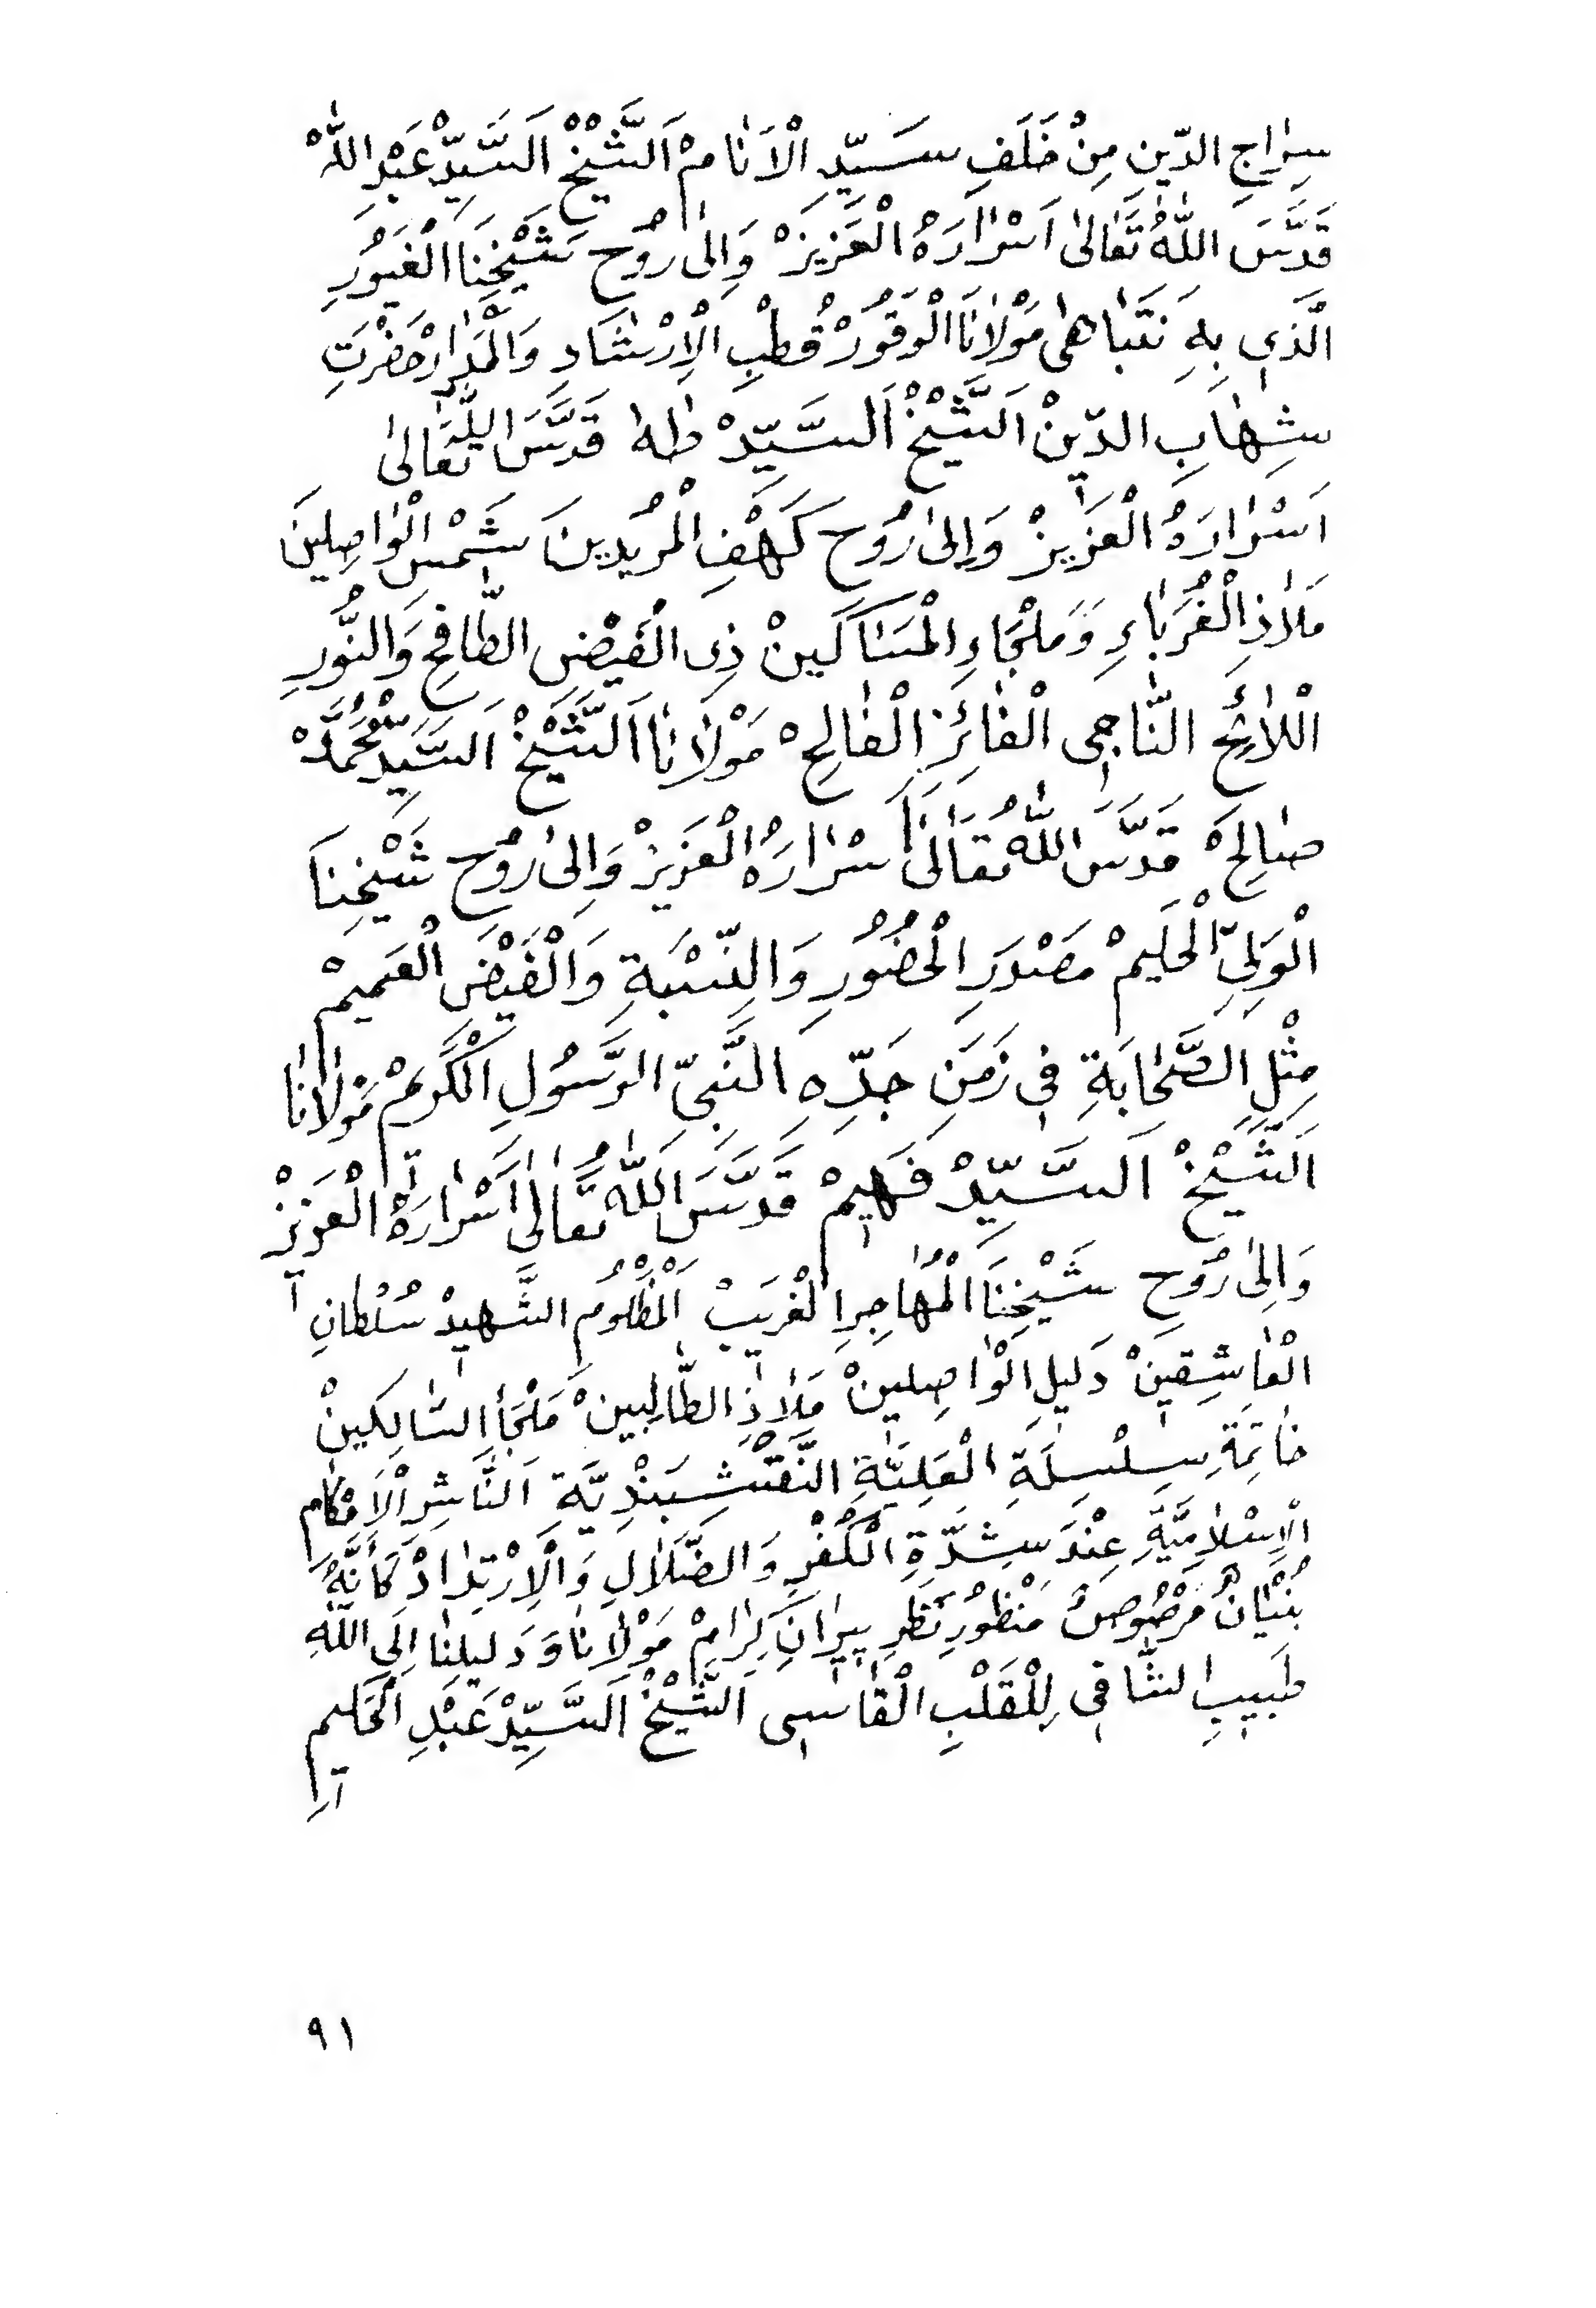 سِرَاجِ الدّينِ مِنْ خَلَفِ سَيِّدِ الْاَنَامْ اَلشَّيْخْ اَلسَّيِّدْ عَبْدِ اللّٰهْ
قَدَّسَ اللّٰهُ تَعَالىٰ اَسْرَارَهُ الْعَزِيزْ وَاِلىٰ رُوحِ شَيْخِنَا الْغَيُورِ
الَّذى بِهِ نَتَبَاهىٰ مَوْلَانَا الْوَقُورْ قُطْبِ الْاِرْشَادِ وَالْمَدَارْ حَضْرَتِ
شِهَابِ الدّينْ اَلشَّيْخْ اَلسَّيِّدْ طٰهٰ قَدَّسَ اللّٰهُ تَعَالىٰ
اَسْرَارَهُ الْعَزيزْ وَاِلىٰ رُوحِ كَهْفِ الْمُرِيدينَ شَمْسِ الْوَاصِلينَ
مَلَاذِ الْغُرَبَاءِ وَمَلْجَاءِ الْمَسَاكَينْ ذِى الْفَيْضِ الطَّافِحِ وَالنُّورِ
اللَّائِحِ النَّاجِى الْفَائِزِ الْفَالِحْ مَوْلَانَا اَلشَّيْخْ اَلسَّيِّدْ مُحَمَّدْ
صَالِحْ قَدَّسَ اللّٰهُ تَعَالىٰ اَسْرَارَهُ الْعَزيزْ وَاِلىٰ رُوحِ شَيْخِنَا
الْوَلِىِّ الْحَلِيمْ مَصْدَرِ الْحُضُورِ وَالنِّسْبَةِ وَالْفَيْضِ الْعَمِيمْ
مِثْلِ الصَّحَابَةِ فِى زَمَنِ جَدِّهِ النَّبِىِّ الرَّسُولِ الْكَرِيمْ مَوْلَانَا
اَلشَّيْخْ اَلسَّيِّدْ فَهِيمْ قَدَّسَ اللّٰهُ تَعَالىٰ اَسْرَارَهُ الْعَزيزْ
وَاِلىٰ رُوحِ شَيْخِنَا الْمُهَاجِرِ الْغَريبْ اَلْمَظْلُومِ الشَّهيدْ سُلْطَانِ
الْعَاشِقينْ دَليلِ الْوَاصِلينْ مَلَاذِ الطَّالِبينْ مَلْجَأِ السَّالِكينْ
خَاتِمَةِ سِلْسِلَةِ الْعَلِيَّةِ النَّقْشِبَنْدِيَّةِ اَلنَّاشِرِ الْاَحْكَامِ
الْاِسْلَامِيَّةِ عِنْدَ شِدَّةِ الْكُفْرِ وَالضَّلَالِ وَالْاِرْتِدَادْ كَأَنَّهُ
بُنْيَانٌ مَرْصُوصٌ مَنْظُورِ نَظَرِ پيرَانِ كِرَامْ مَوْلَانَا وَدَليلِنَا اِلَى اللّٰهِ
طَبيبِ الشَّافى لِلْقَلْبِ الْقَاسى اَلشَّيْخْ اَلسَّيِّدْ عَبْدِ الْحَكيمِ
٩١